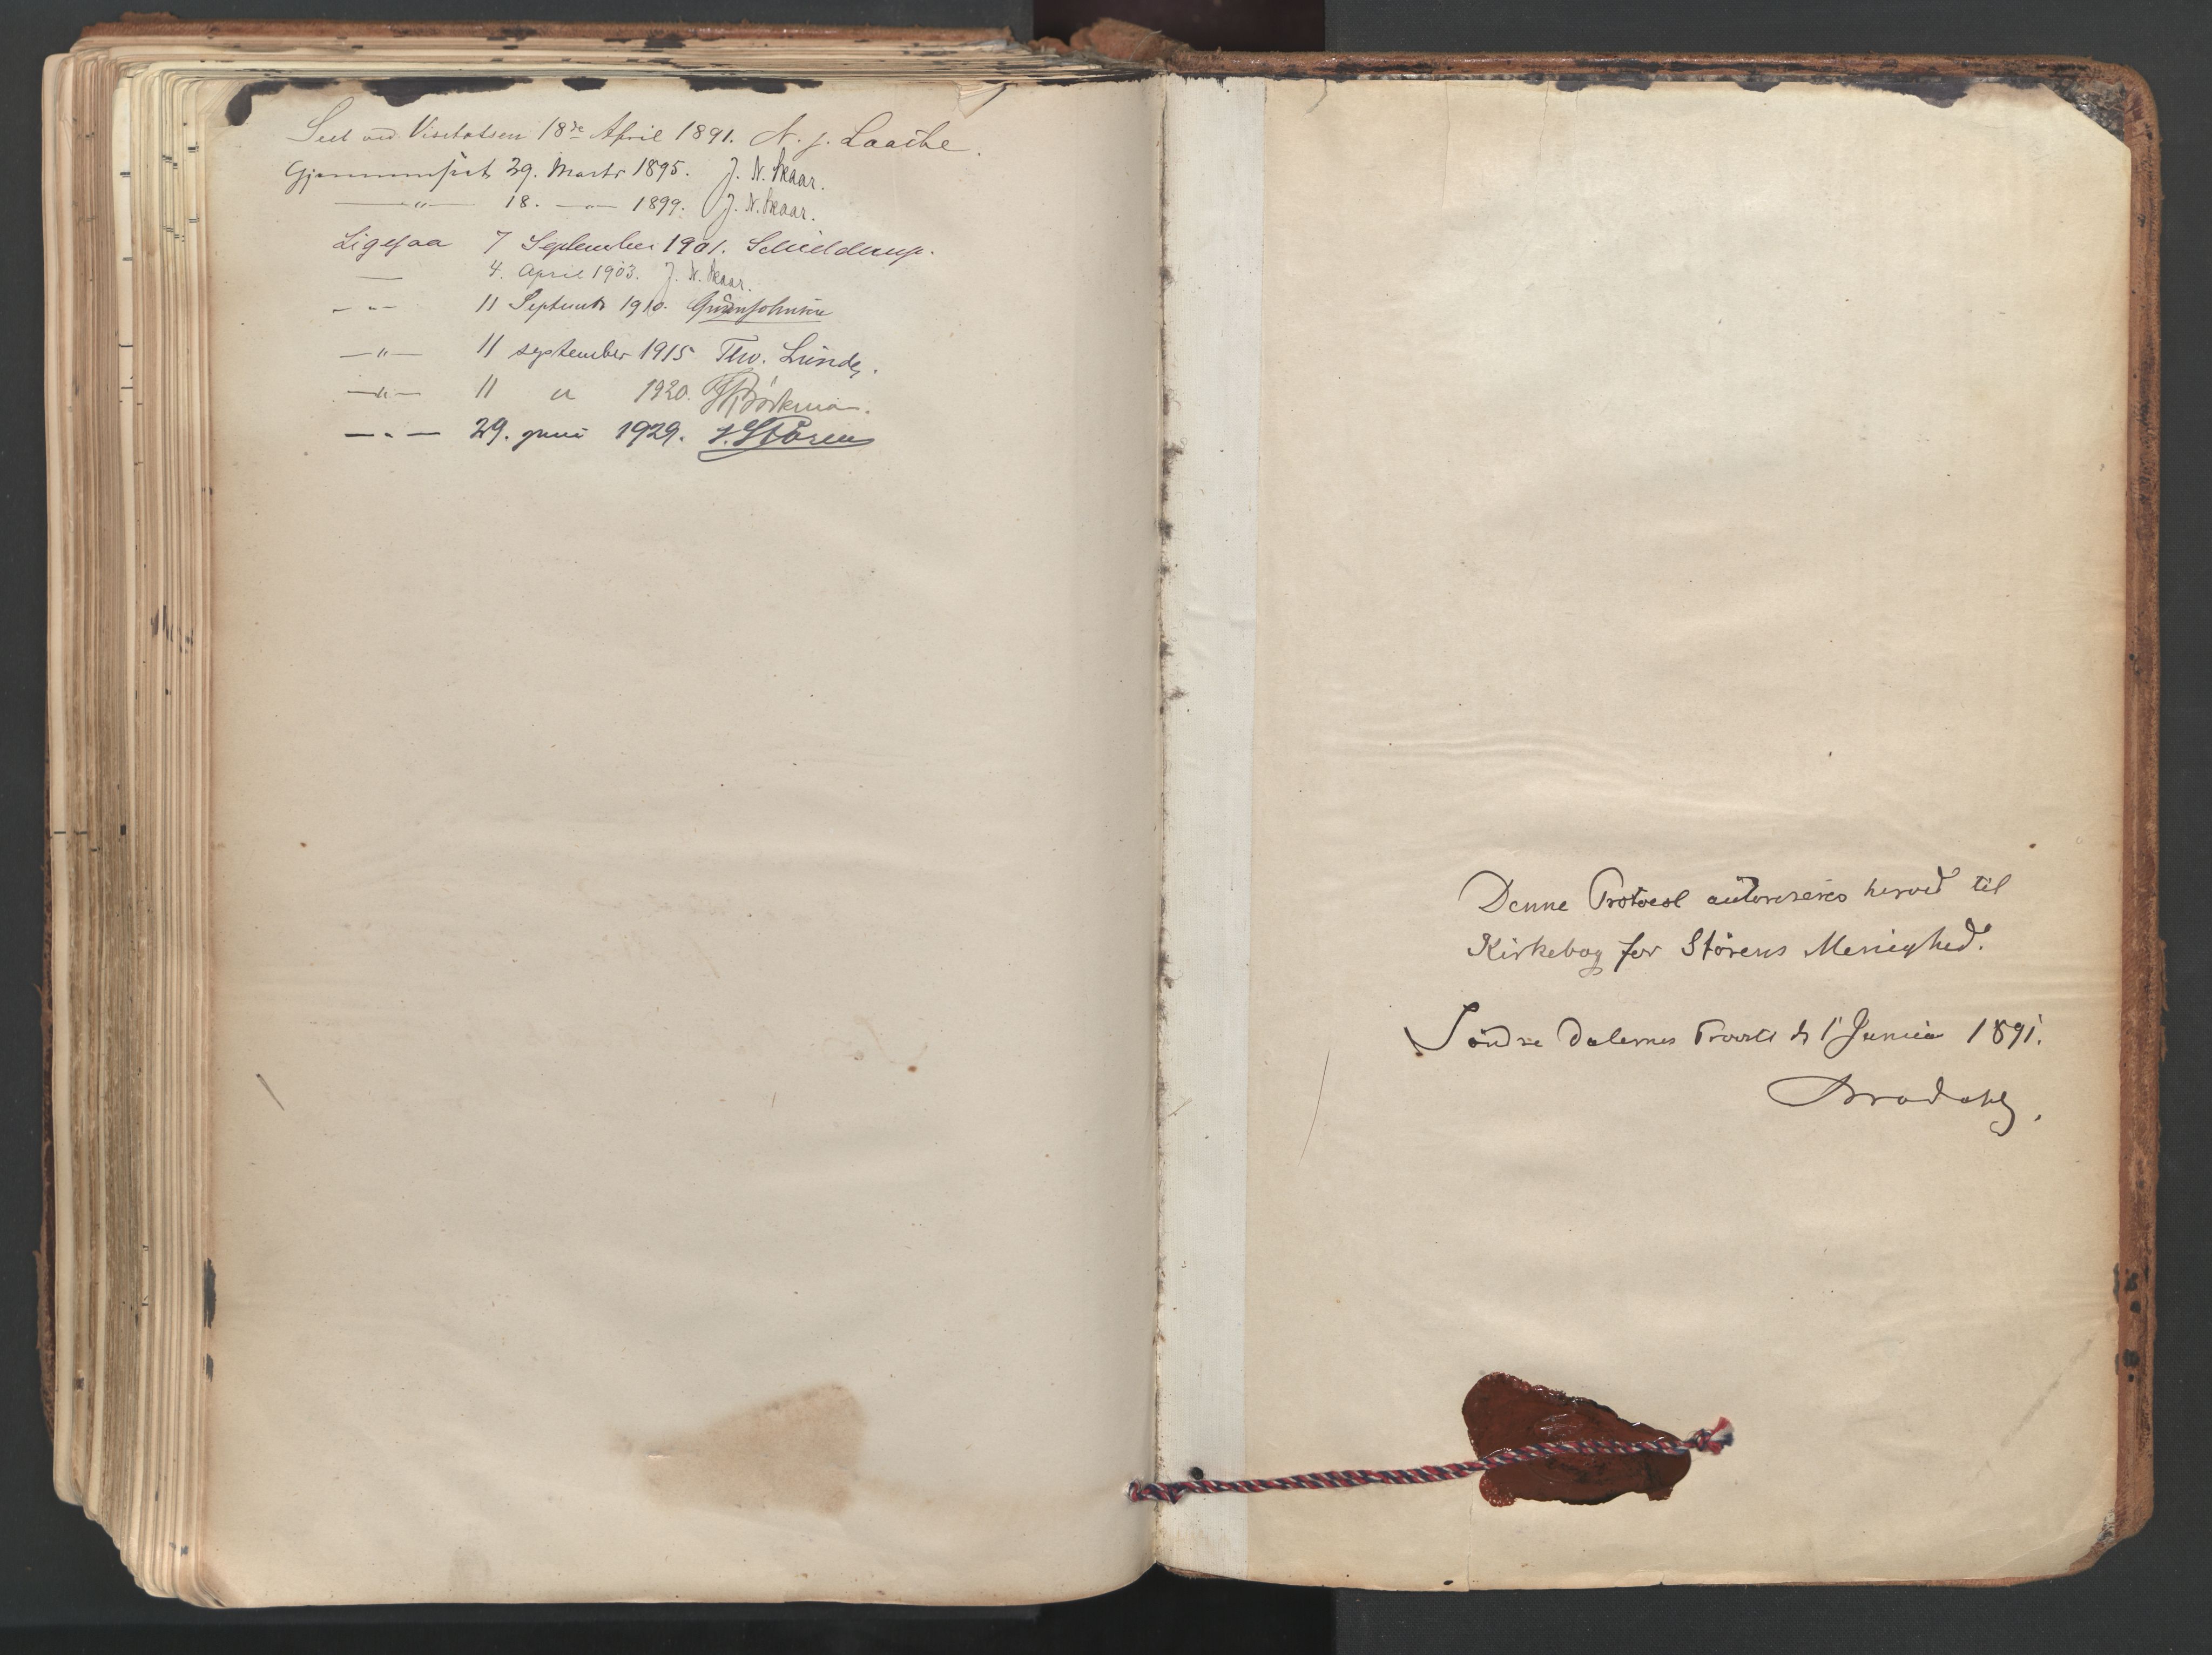 Seet ved Visitatsen 18de April 1891. N. J. Laache.
Gjennemseet 29. Marts 1895. J. N. Skaar.
—〃— 18. —〃— 1899. J. N. Skaar.
Ligesaa 7 September 1901. Schjelderup.
— 4. April 1903. J. N. Skaar.
– „ – 11 Septemb 1910.
—〃— 11 september 1915 Thv. Lunde,.
—〃— 11 〃 1920. Björkman.
— „ — 29. juni 1929. J. Støren
Denne Protocol autoriseres herved til
Kirkebog for Störens Menighed.
Söndre Dalernes Provsti d. 1 Junii 1891.
Brodahl.